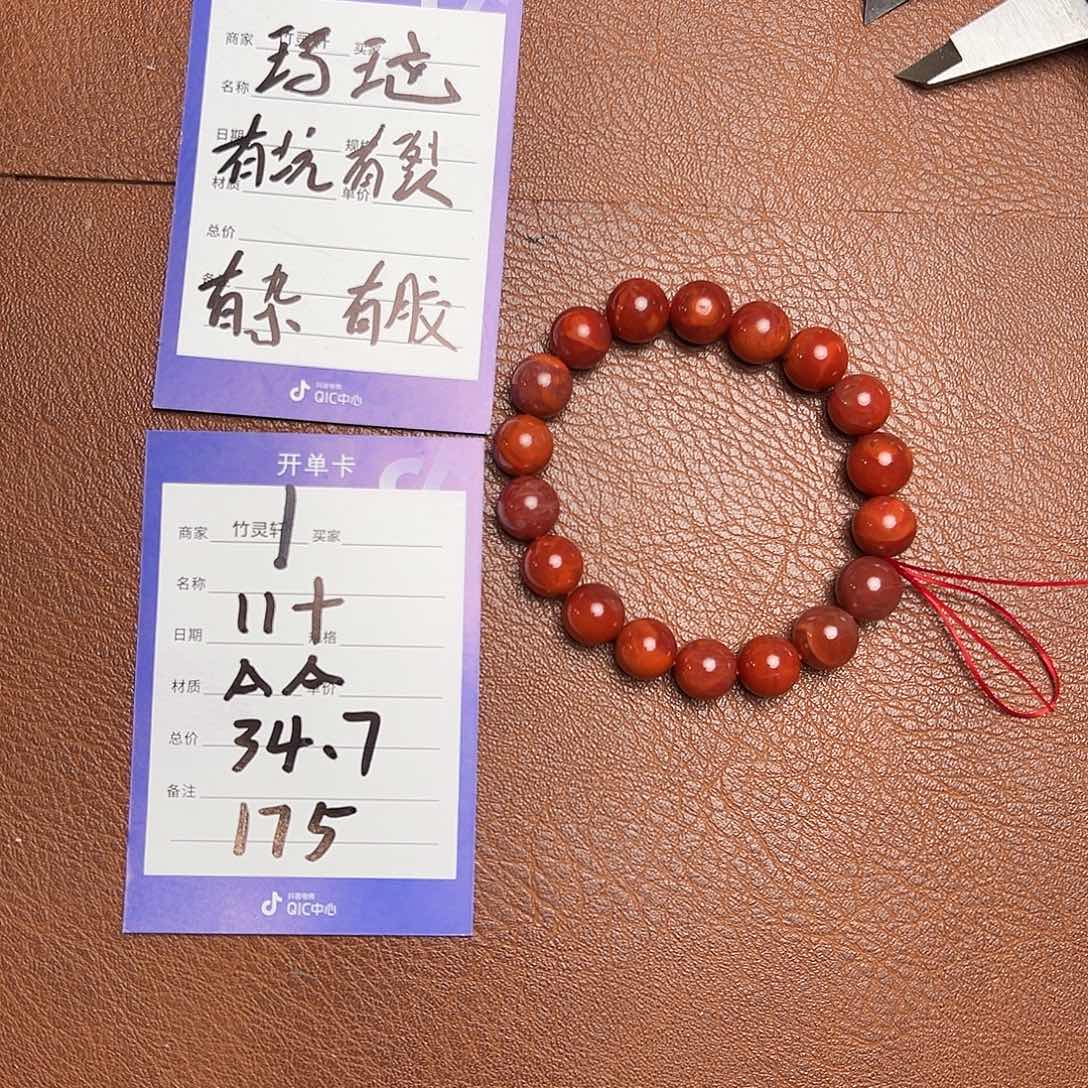 商家 竹灵轩 买家
玛瑙
名称
日期 规格
有坑有裂
材质 单价
总价
有杂 有胶
抖音电商
QIC中心
开单卡
1
商家 竹灵轩 买家
名称
11+
日期 规格
AA
材质 单价
34.7
总价
备注
175
抖音电商
QIC中心